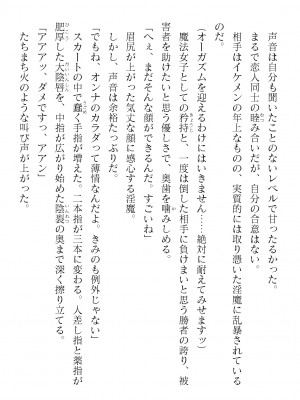 声音は自分も聞いたことのないレベルで甘ったるかった。
まるで恋人同士の睦み合いだが、自分の合意はない。
相手はイケメンの年上なものの、実質的には取り憑いた淫魔に乱暴されているのだ。
(オーガズムを迎えるわけにはいきません……絶対に耐えてみせますッ)
魔法女子としての矜持と、一度は倒した相手に負けまいと思う勝者の誇り、被害者を助けたいと思う優しさで、奥歯を噛みしめる。
「へぇ、まだそんな顔ができるんだ。すごいね」
眉尻が上がった気丈な顔に感心する淫魔。
しかし、声音は余裕たっぷりだ。
「でもね、オンナのカラダって薄情なんだよ。きみのも例外じゃない」
スカートの中で蠢く手指が増えた。二本指が三本に変わる。人差し指と薬指が肥厚した大陰唇を、中指が広がり始めた陰裂の奥まで深く擦り立てる。
「アアアッ、ダメですっ、アアッ」
たちまち火のような叫び声が上がった。